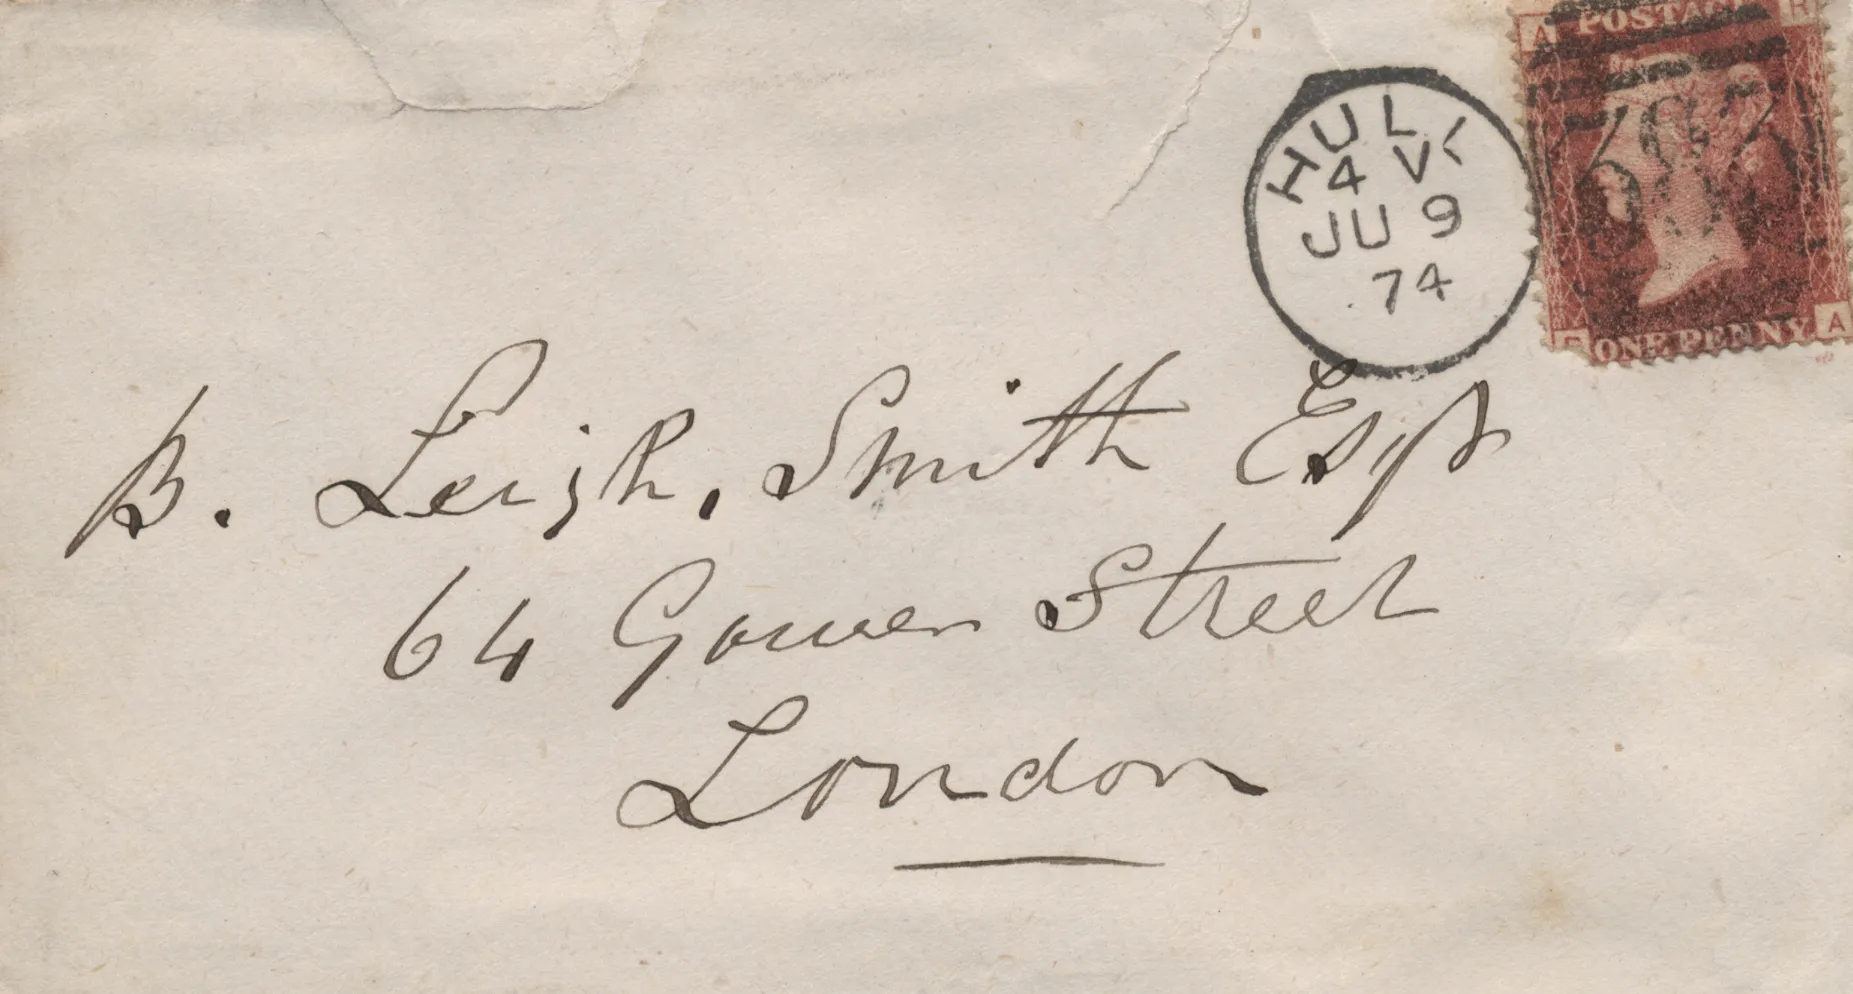 A POSTAGE R
383
HULL
4 V
JU 9
74
ONE PENNY A
B. Leigh, Smith Esqr
64 Gower Street
London